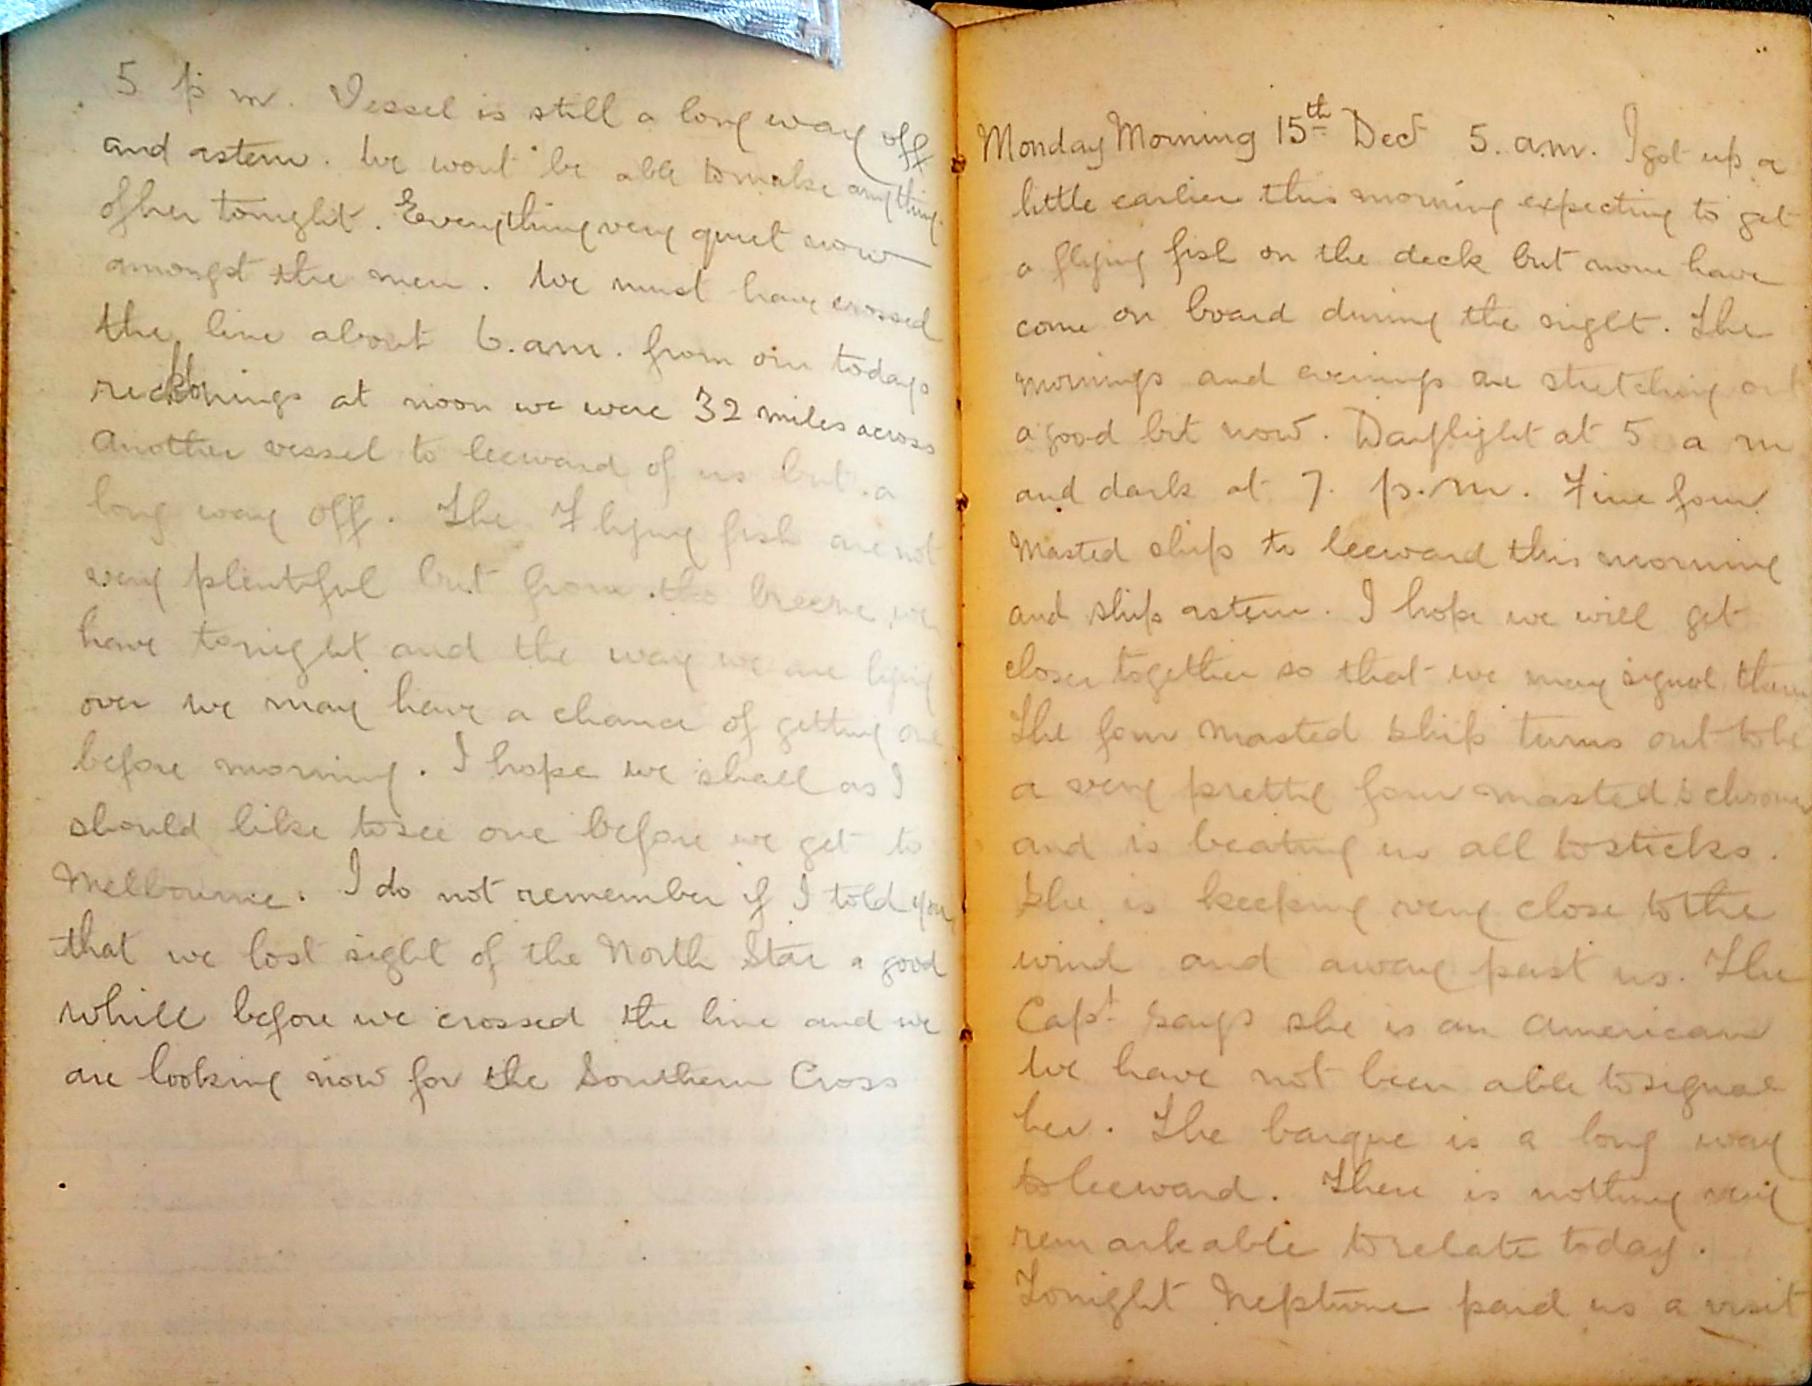 5 p m. Vessel is still a long way off
and astern. We wont be able to make anything
of her tonight. Everything very quiet now
amongst the men. We must have crossed
the line about 6.am. from our todays
reckonings at noon we were 32 miles across
Another vessel to leeward of us but a
long way off. The Flying fish are not
very plentiful but from the breeze we
have tonight and the way we are lying
over we may have a chance of getting one
before morning. I hope we shall as I
should like to see one before we get to
Melbourne. I do not remember if I told you
that we lost sight of the North Star a good
while before we crossed the line and we
are looking now for the Southern Cross
Monday Morning 15th Dec 5. a.m. I got up a
little earlier this morning expecting to get
a flying fish on the deck but none have
come on board during the night. The
mornings and evenings are stretching out
a good bit now. Daylight at 5 a m
and dark at 7. p.m. Fine four
Masted ship to leeward this morning
and ship astern. I hope we will get
closer together so that we may signal them
The four masted ship turns out to be
a very pretty four masted schooner
and is beating us all to sticks.
She is keeping very close to the
wind and away past us. The
Capt. says she is an American
We have not been able to signal
her. The barque is a long way
to leeward. There is nothing very
remarkable to relate today.
Tonight Neptune paid us a visit